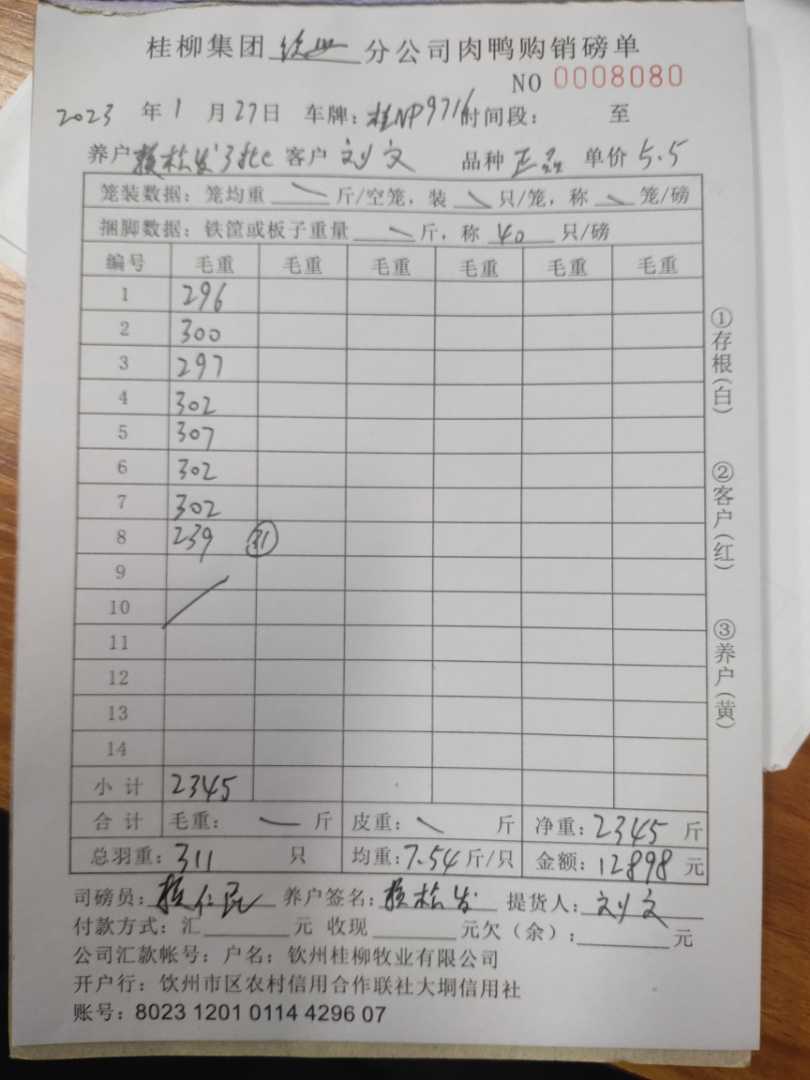 桂柳集团 钦州 分公司肉鸭购销磅单
NO 0008080
2023 年 1 月 27 日 车牌：桂NP9716 时间段： 至
养户 发3批 客户 刘文 品种 单价 5.5
笼装数据：笼均重 斤/空笼，装 只/笼，称 笼/磅
捆脚数据：铁筐或板子重量 斤，称 40 只/磅
编号 毛重 毛重 毛重 毛重 毛重 毛重
1 296
2 300
3 297
4 302
5 307
6 302
7 302
8 239 31
9
10
11
12
13
14
小计 2345
合计 毛重： 斤 皮重： 斤 净重：2345 斤
总羽重：311 只 均重：7.54 斤/只 金额：12898 元
司磅员： 养户签名： 提货人：刘文
付款方式：汇 元 收现 元欠（余）： 元
公司汇款帐号：户名：钦州桂柳牧业有限公司
开户行：钦州市区农村信用合作联社大垌信用社
账号：8023 1201 0114 4296 07
①存根(白)
②客户(红)
③养户(黄)